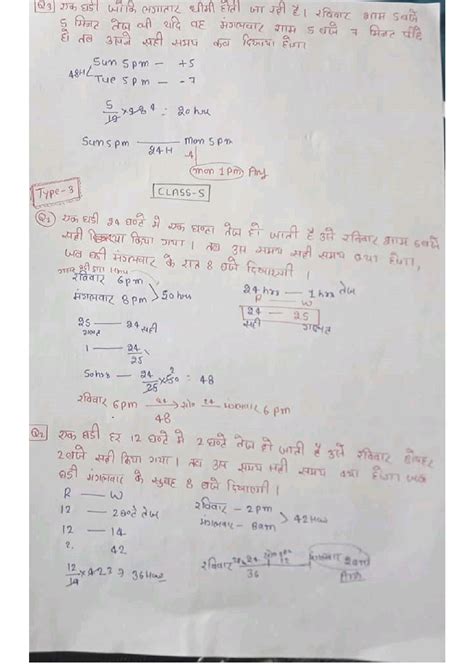 Q3) एक घड़ी जोकि लगातार धीमी होती जा रही है। रविवार शाम 5 बजे
5 मिनट तेज थी यदि वह मंगलवार शाम 5 बजे 7 मिनट पीछे
हो तब उसने सही समय कब दिखाया होगा।
48H Sun 5pm - +5
Tue 5pm - -7
5/12 × 48 4 = 20 hrs
Sun 5pm 24H Mon 5pm
-4
Mon 1pm Ans
Type-3 CLASS-5
Q1) एक घड़ी 24 घण्टे में एक घण्टा तेज हो जाती है उसे रविवार शाम 6 बजे
सही किया गया। तब उस समय सही समय क्या होगा,
जब घड़ी मंगलवार के रात 8 बजे दिखाएगी।
रविवार 6pm
मंगलवार 8pm > 50 hrs
24 hrs — 1 hrs तेज
R — W
24 — 25
सही गलत
25 — 24 सही
गलत
1 — 24/25
50 hrs — 24/25 × 50 2 = 48
रविवार 6pm 24 सोम 24 मंगलवार 6pm
48
Q2) एक घड़ी हर 12 घण्टे में 2 घण्टे तेज हो जाती है उसे रविवार दोपहर
2 बजे सही किया गया। तब उस समय सही समय क्या होगा जब
घड़ी मंगलवार के सुबह 8 बजे दिखाएगी।
R — W
12 — 2 घण्टे तेज
12 — 14
? 42
रविवार - 2pm
मंगलवार - 8am > 42 Hrs
12/14 × 42 3 = 36 Hrs
रविवार 2pm 24 सोम 2pm 12 मंगलवार 2am
36 Ans